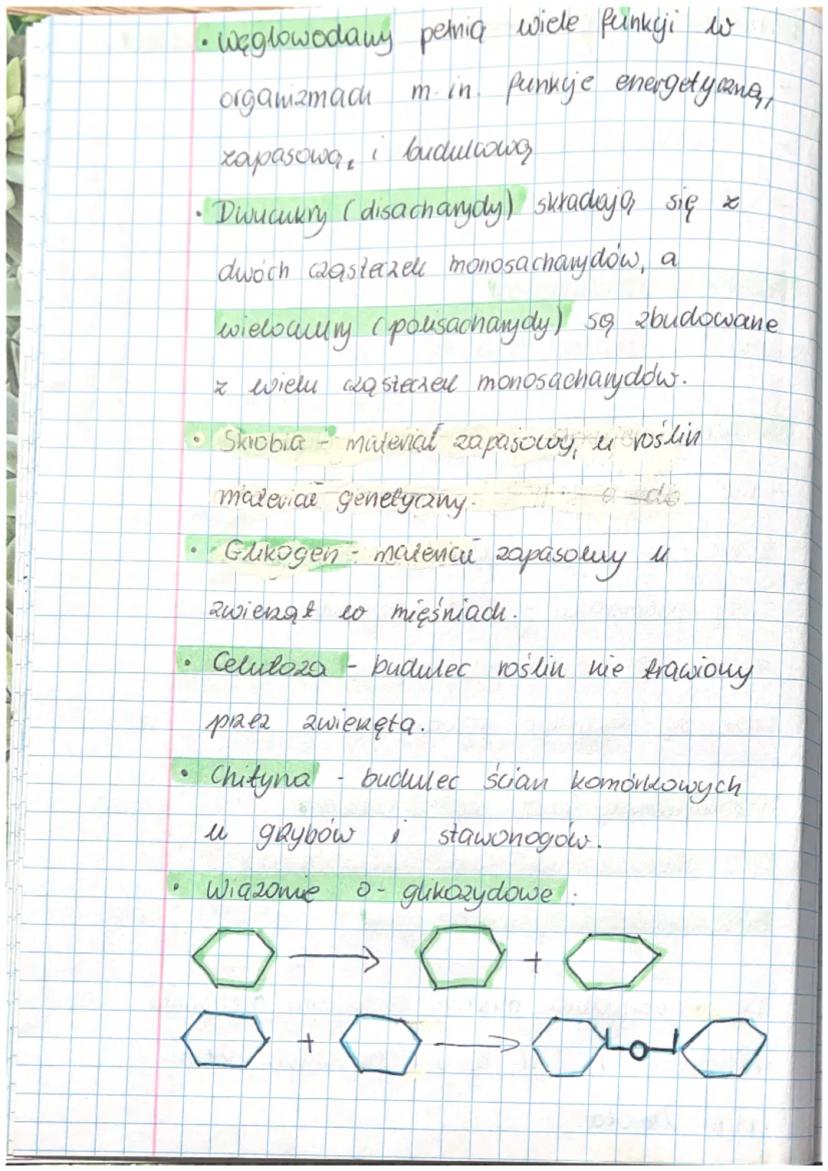 • Węglowodany pełnią wiele funkcji w
organizmach m. in. funkcje energetyczną,
zapasową, i budulcową
• Dwucukry (disacharydy) składają się z
dwóch cząsteczek monosacharydów, a
wielocukry (polisacharydy) są zbudowane
z wielu cząsteczek monosacharydów.
• Skrobia - materiał zapasowy, u roślin
materiał genetyczny.
• Glikogen - materiał zapasowy u
zwierząt w mięśniach.
• Celuloza - budulec roślin nie trawiony
przez zwierzęta.
• Chityna - budulec ścian komórkowych
u grzybów i stawonogów.
• Wiązanie O - glikozydowe :
+
+ O